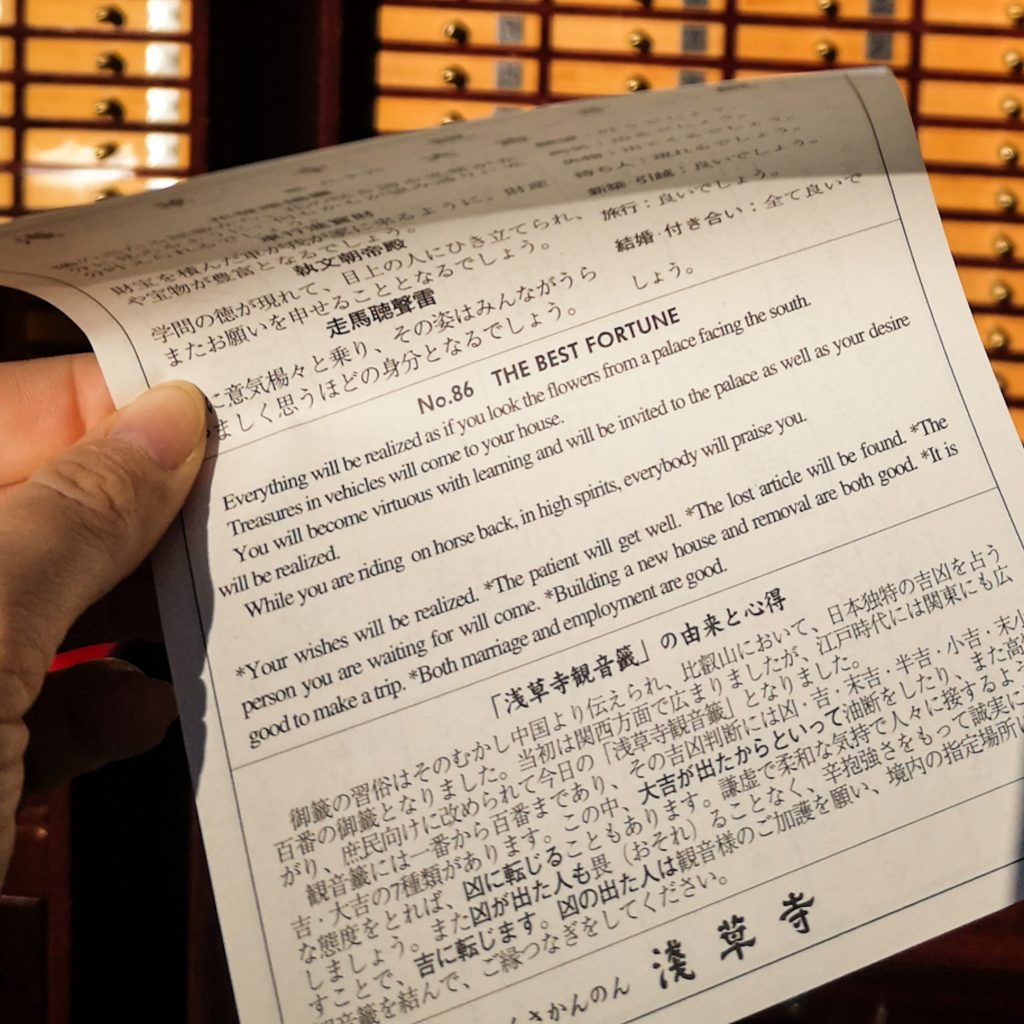 財産
待ち人：現れるでしょう。
新築 引越：良いでしょう。
旅行：良いでしょう。
結婚・付き合い：全て良いで
しょう。
財宝を積んだ車が我が家に来るように、
や宝物が豊富となるでしょう。
執文朝帝殿
学問の徳が現れて、目上の人にひき立てられ、
またお願いを申せることとなるでしょう。
走馬聴聲雷
に意気楊々と乗り、その姿はみんながうら
ましく思うほどの身分となるでしょう。
No.86 THE BEST FORTUNE
Everything will be realized as if you look the flowers from a palace facing the south.
Treasures in vehicles will come to your house.
You will become virtuous with learning and will be invited to the palace as well as your desire
will be realized.
While you are riding on horse back, in high spirits, everybody will praise you.
*Your wishes will be realized. *The patient will get well. *The lost article will be found. *The
person you are waiting for will come. *Building a new house and removal are both good. *It is
good to make a trip. *Both marriage and employment are good.
「浅草寺観音籤」の由来と心得
御籤の習俗はそのむかし中国より伝えられ、比叡山において、日本独特の吉凶を占う
百番の御籤となりました。当初は関西方面で広まりましたが、江戸時代には関東にも広
がり、庶民向けに改められて今日の「浅草寺観音籤」となりました。
観音籤には一番から百番まであり、その吉凶判断には凶・吉・末吉・半吉・小吉・末小
吉・大吉の7種類があります。この中、大吉が出たからといって油断をしたり、また高
な態度をとれば、凶に転じることもあります。謙虚で柔和な気持で人々に接するよう
しましょう。また凶が出た人も畏（おそれ）ることなく、辛抱強さをもって誠実に
すことで、吉に転じます。凶の出た人は観音様のご加護を願い、境内の指定場所に
観音籤を結んで、ご縁つなぎをしてください。
くさかんのん 淺草寺